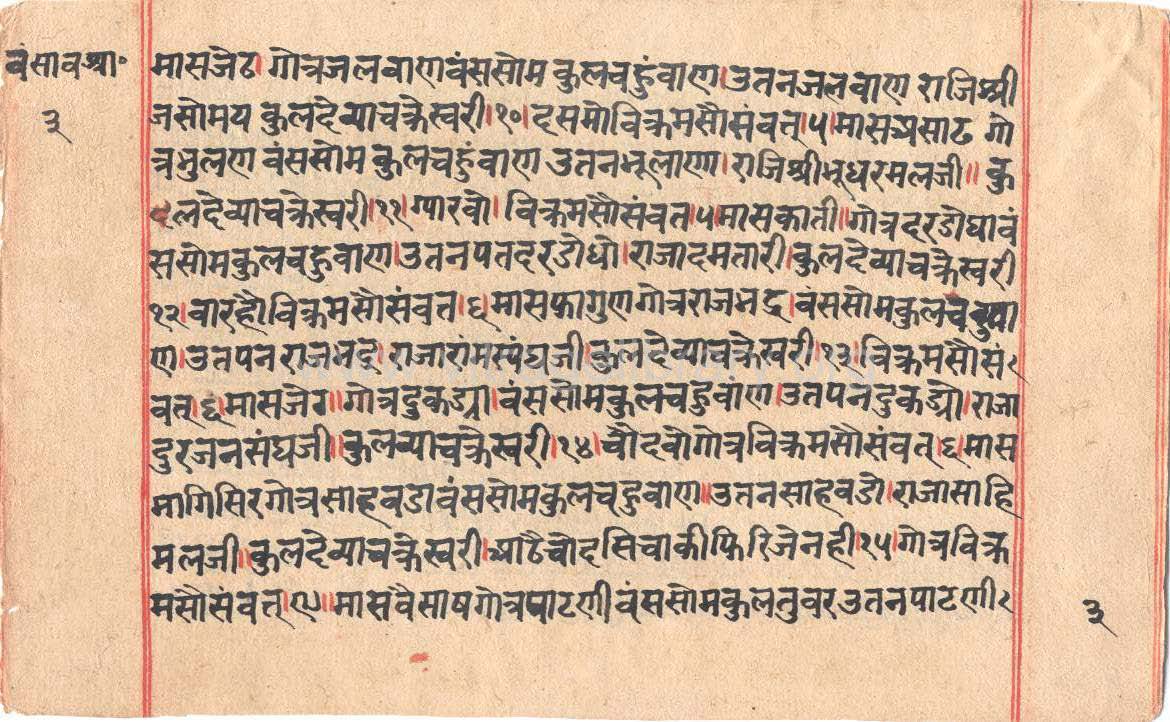 वंसावल्याः
३
मासजेठ। गोत्रजलवाणवंससोम कुलचहुंवाण।उतनजलवाण राजिश्री
जसोमय कुलदेव्याचक्रेस्वरी।१०।दसमोविक्रमसौसंवत्।५।मासअसाढ गो
त्रभुलण वंससोम कुलचहुंवाण उतनभूलाणा।राजिश्रीभूधरमलजी॥ कु
लदेव्याचक्रेस्वरी।११।ग्यारवो।विक्रमसौसंवत।५।मासकाती॥गोत्रदरडोद्यावं
ससोमकुलचहुवाण।उतनपतदरडोधो।राजादमतारी।कुलदेव्याचक्रैस्वरी
१२।वारहौविक्रमसौसंवत।६।मासफागुणगोत्रराजभद्र।वंससोमकुलचहुवा
ण।उतपनराजभद्रे।राजारामस्यंघजी।कुलदेव्याचक्रैस्वरी।१३।विक्रमसौसं॰
वत्।६।मासजेठ॥गोत्रदुकड्या।वंससोमकुलचहुवांण।उतपनदुकड्यो।राजा
दुरजनसंघजी॥कुलव्याचक्रैस्वरी।१४।चौदवौगोत्रविक्रमसौसंवत्।६।मास
मागिसिरगोत्रसाहवडावंससोमकुलचहुवाण॥उतनसाहवडो।राजासाहि
मलजी॥कुलदेव्याचक्रैस्वरी।आठैचौदसिचाकीफिरिजेनही।१५।गोत्रविक्र
मसौसंवत्।९७॥मासवैसाषगोत्रपाटणीवंससोमकुलतुवरउतनपाटणी॰
३